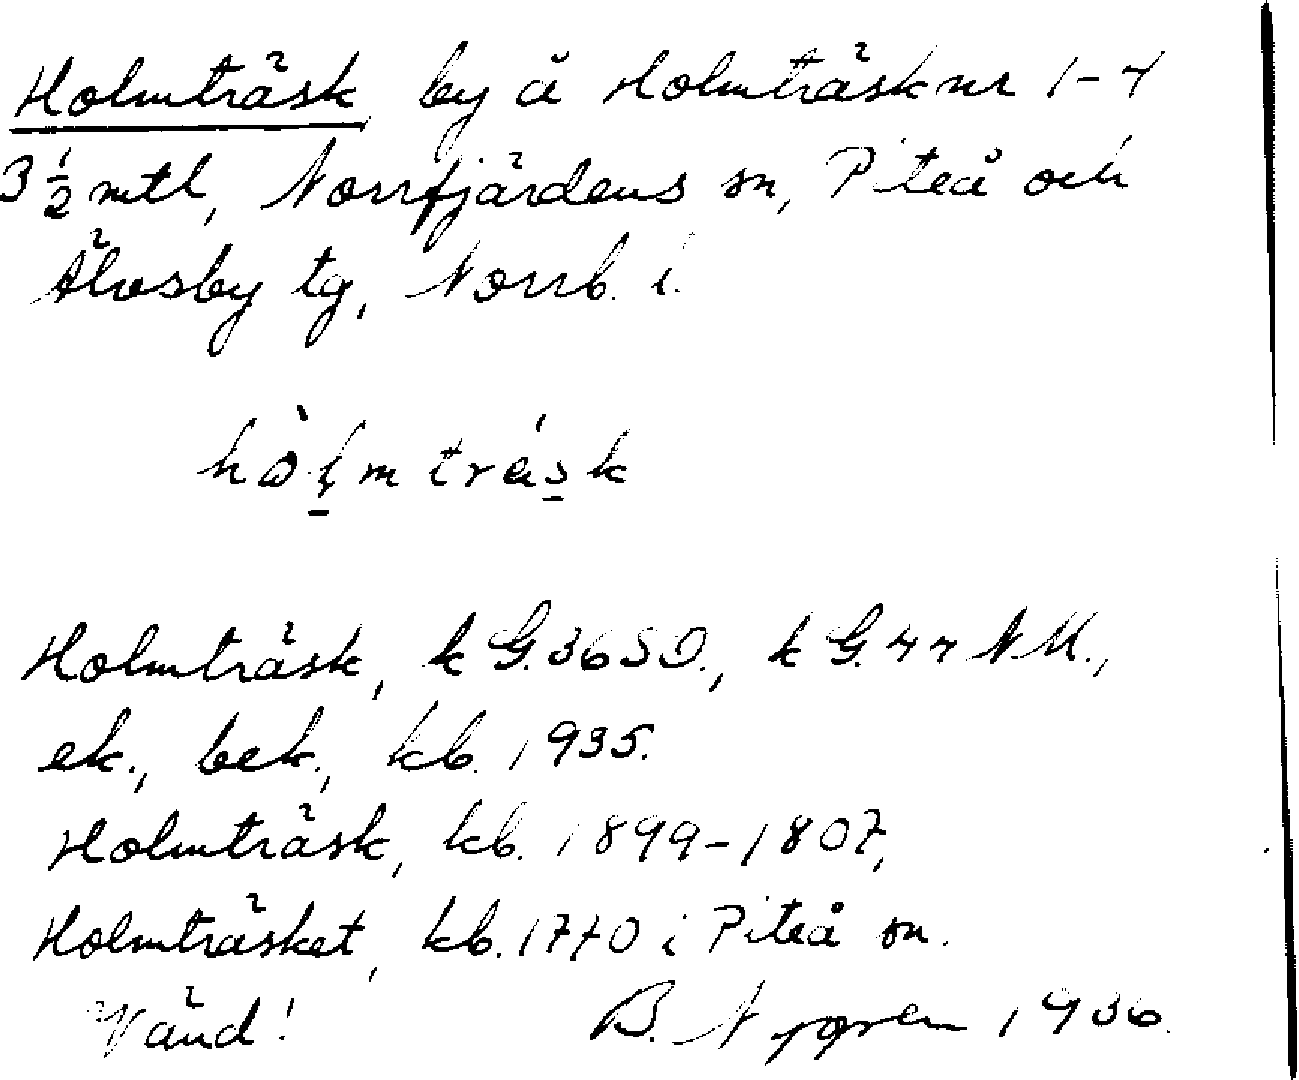 Holmträsk by å Holmträsk nr 1-4
3 ½ mtl, Norrfjärdens sn, Piteå och
Älvsby tg, Norrb. l.
hò̀ḷmtrásk
Holmträsk, k G. 36 SO., k G. 44 NM.,
ek., bek., kb. 1935.
Holmträsk, kb. 1899-1807,
Holmträsket, kb. 1770 i Piteå sn.
Vänd! B. Nygren 1936.